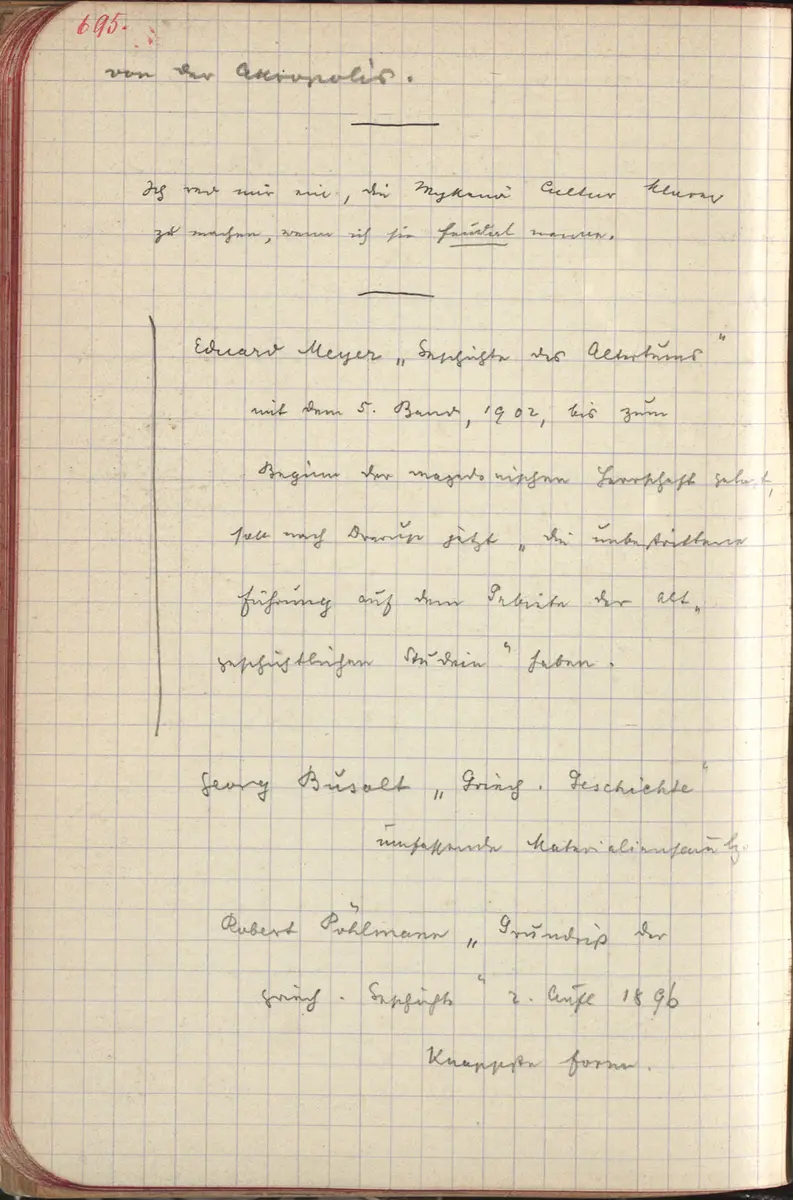 695.
von der Akropolis.
Ich red mir ein, die Mykenä Cultur klarer
zu machen, wenn ich sie feudal nenne.
Eduard Meyer „Geschichte des Altertums“
mit dem 5. Band, 1902, bis zum
Beginn der mazedonischen Herrschaft gelangt,
soll nach Drerup jetzt „die unbestrittene
Führung auf dem Gebiete der alt„
geschichtlichen Studien“ haben.
Georg Busolt „Griech. Geschichte“
umfassende
Robert Pöhlmann „Grundriß der
griech. Geschichte“ 2. Aufl 1896
Knappste Form.